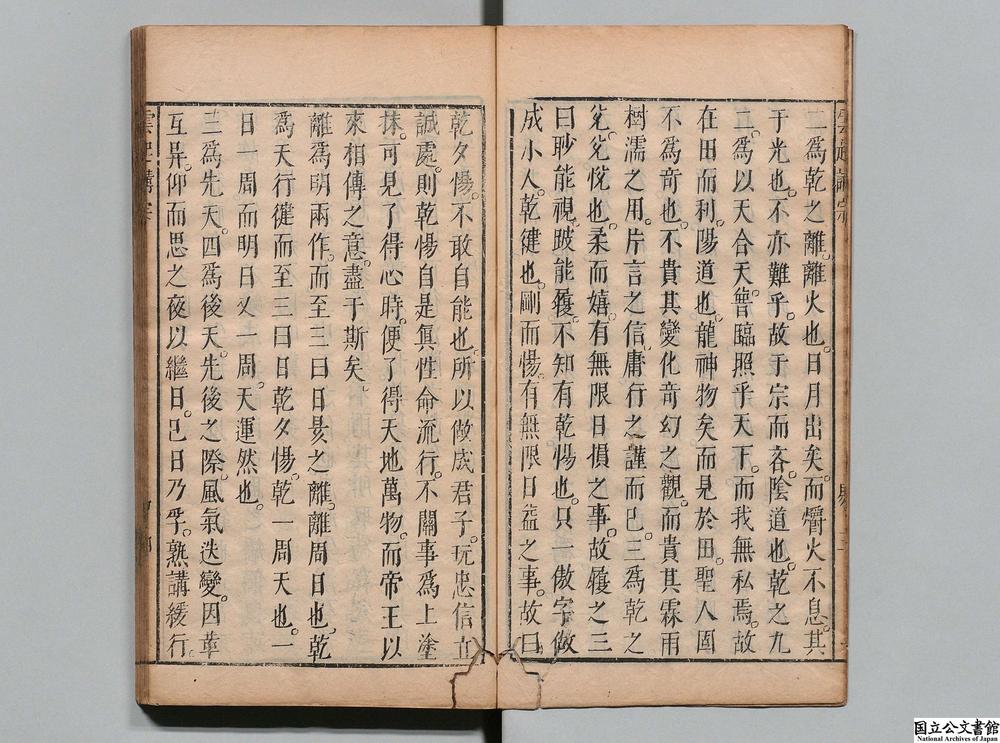 二爲乾之離離火也日月出矣而爝火不息其
于光也不亦難乎故于宗而吝陰道也乾之九
二爲以天合天曾臨照乎天下而我無私焉故
在田而利陽道也龍神物矣而見於田聖人固
不爲奇也不貴其變化奇幻之觀而貴其霖雨
樹濡之用片言之信庸行之謹而已三爲乾之
兌兌悅也柔而嬉有無限日損之事故履之三
曰眇能視跛能履不知有乾惕也只一傲字做
成小人乾健也剛而惕有無限日益之事故曰
乾夕惕不敢自能也所以做成君子玩忠信立
誠處則乾惕自是眞性命流行不關事爲上塗
抹可見了得心時便了得天地萬物而帝王以
來相傳之意盡于斯矣
離爲明兩作而至三曰日昃之離離周日也乾
爲天行健而至三曰日乾夕惕乾一周天也一
日一周而明日又一周天運然也
三爲先天四爲後天先後之際風氣迭變因革
互異仰而思之夜以繼日已日乃孚熟講緩行
雲起講宗
国立公文書館
National Archives of Japan